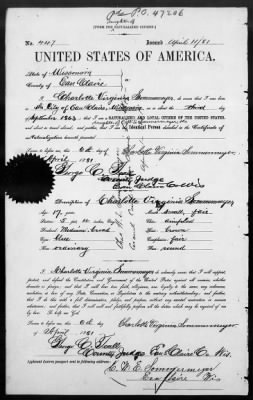 47206
[FORM FOR NATURALIZED CITIZEN.]
No. 447
Issued April 11/81
UNITED STATES OF AMERICA.
State of Wisconsin
County of Eau Claire
I, Charlotte Virginia Sommermeyer, do swear that I was born
in the City of Eau Claire, Wisconsin, on the third day of
September 1863, that I am a NATURALIZED AND LOYAL CITIZEN OF THE UNITED STATES,
and about to travel abroad; and further, that I am the Identical Person described in the Certificate of
Naturalization herewith presented.
Sworn to before me, this 6th day
of April 1881
Charlotte Virginia Sommermeyer
George C. Teall
County Judge
Eau Claire Co Wis
Description of Charlotte Virginia Sommermeyer
Age: 17 years
Mouth: small, fair
Stature: 5 feet
Chin: dimpled
Forehead: Medium broad
Hair: brown
Eyes: blue
Complexion: fair
Nose: ordinary
Face: round
I, Charlotte Virginia Sommermeyer, do solemnly swear that I will support,
protect, and defend the Constitution and Government of the United States against all enemies, whether
domestic or foreign; and that I will bear true faith, allegiance, and loyalty to the same, any ordinance,
resolution, or law of any State, Convention, or Legislature to the contrary notwithstanding; and further,
that I do this with a full determination, pledge, and purpose, without any mental reservation or evasion
whatsoever; and further, that I will well and faithfully perform all the duties which may be required of me
by law. So help me God.
Sworn to before me, this 6th day
of April 1881
Charlotte Virginia Sommermeyer
George C. Teall
County Judge Eau Claire Co. Wis.
Applicant desires passport sent to following address:
C. W. E. Sommermeyer
Eau Claire Wis